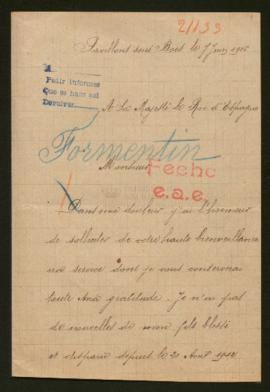 21133
Pavillons sous Bois le 7 Juin 1916
A
Pedir informes
Que se haga así
Devolver
A Sa Majesté le Roi d'Espagne
Formentin
Monsieur
Fecho
e.a.e.
Dans ma douleur j'ai l'honneur
de solliciter de votre haute bienveillance
un service dont je vous conserverai
toute ma gratitude. Je n'ai pas
de nouvelles de mon fils blessé
et disparu depuis le 20 Aout 1914